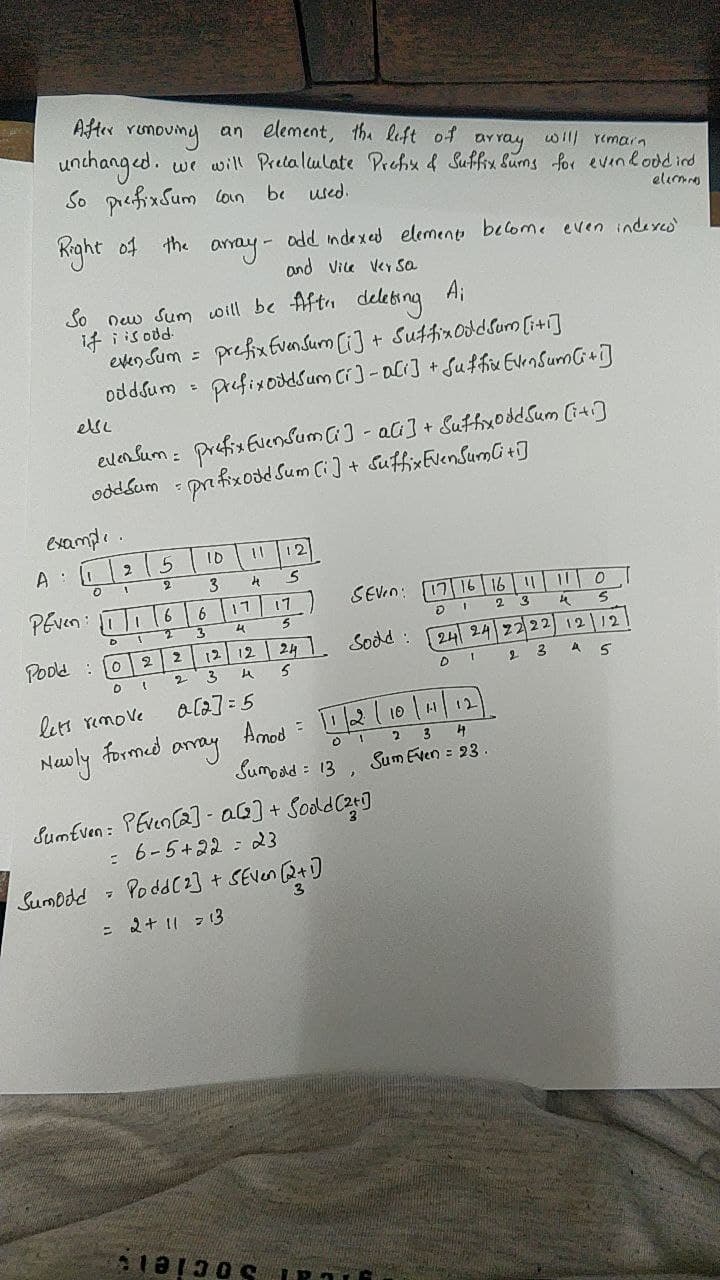 After removing an element, the left of array will remain
unchanged. we will Precalculate Prefix & Suffix Sums for even & odd ind
elements
So prefixSum can be used.
Right of the array - odd indexed elements become even indexed
and vice versa
So new sum will be After deleting Ai
if i is odd
evenSum = prefixEvenSum[i] + SuffixOddSum[i+1]
oddSum = PrefixoddSum[i] - a[i] + SuffixEvenSum[i+1]
else
evenSum = PrefixEvenSum[i] - a[i] + SuffixoddSum[i+1]
oddSum = prefixoddSum[i] + SuffixEvenSum[i+1]
example.
A : 1 2 5 10 11 12
0 1 2 3 4 5
PEven: 1 1 6 6 17 17
0 1 2 3 4 5
SEven: 17 16 16 11 11 0
0 1 2 3 4 5
Podd : 0 2 2 12 12 24
0 1 2 3 4 5
Sodd : 24 24 22 22 12 12
0 1 2 3 4 5
lets remove a[2] = 5
Newly formed array Amod = 1 2 10 11 12
0 1 2 3 4
Sumodd = 13 , SumEven = 23.
SumEven = PEven[2] - a[2] + Sodd[2+1]
3
= 6 - 5 + 22 = 23
SumOdd = Podd[2] + SEven[2+1]
3
= 2 + 11 = 13